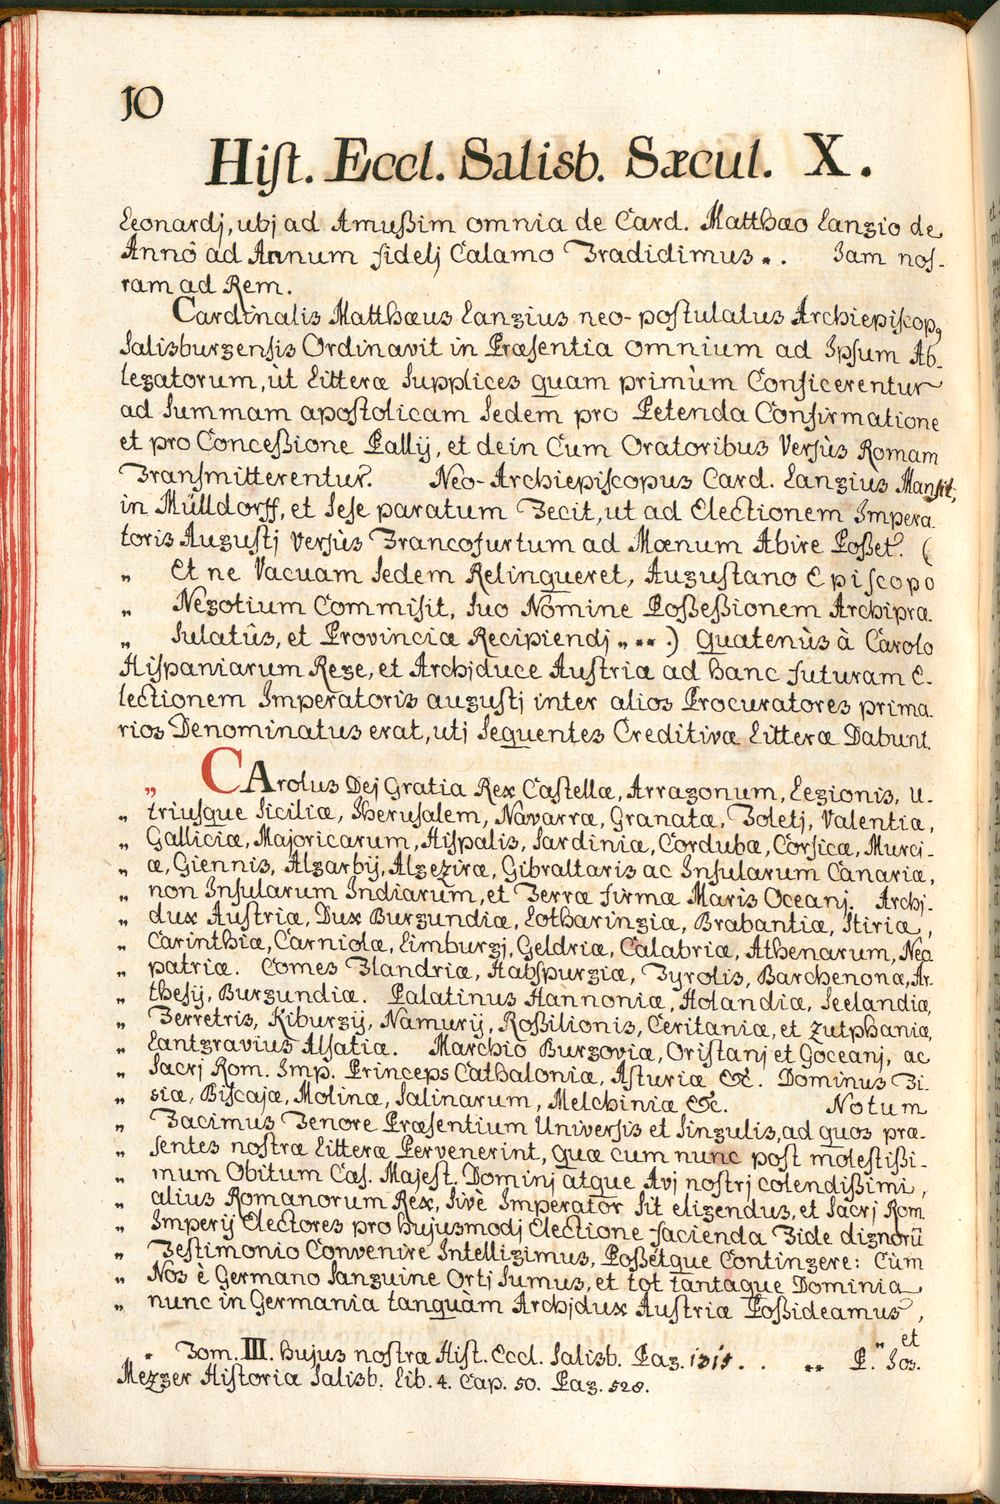 10
Hist. Eccl. Salisb. Sæcul. X.
Leonardj, ubj ad Amußim omnia de Card. Matthæo Langio de
Annô ad Annum fidelj Calamo Tradidimus *. Jam nos-
tram ad Rem.
Cardinalis Matthæus Langius neo-postulatus Archiepiscop9
Salisburgensis Ordinavit in Præsentia omnium ad Ipsum Ab-
legatorum, ùt Litteræ Supplices quam primùm Conficerentur
ad Summam apostolicam Sedem pro Petenda Confirmatione
et pro Conceßione Pallij, et dein Cum Oratoribus Versùs Romam
Transmitterentur. Neo-Archiepiscopus Card. Langius Mansit,
in Mülldorff, et Sese paratum Fecit, ut ad Electionem Impera-
toris Augustj Versùs Francofurtum ad Mœnum Abire Poßet. (
„ Et ne Vacuam Sedem Relinqueret, Augustano Episcopo
„ Negotium Commisit, Suo Nomine Poßeßionem Archipræ-
„ Sulatûs, et Provinciæ Recipiendj „ ** .) quatenùs à Carolo
Hispaniarum Rege, et Archjduce Austriæ ad hanc futuram E-
lectionem Imperatoris augustj inter alios Procuratores prima-
rios Denominatus erat, utj Sequentes Creditivæ Litteræ Dabunt.
„ CArolus Dej Gratia Rex Castellæ, Arragonum, Legionis, U-
„ triusque Siciliæ, Jherusalem, Navarræ, Granatæ, Toletj, Valentiæ,
„ Galliciæ, Majoricarum, Hispalis, Sardiniæ, Cordubæ, Corsicæ, Murci-
„ æ, Giennis, Algarbij, Algeziræ, Gibraltaris ac Insularum Canariæ,
„ non Insularum Indiarum, et Terræ firmæ Maris Oceanj. Archj-
„ dux Austriæ, Dux Burgundiæ, Lotharingiæ, Brabantiæ, Stiriæ,
„ Carinthiæ, Carniolæ, Limburgj, Geldriæ, Calabriæ, Athenarum, Neo
„ patriæ. Comes Flandriæ, Habspurgiæ, Tyrolis, Barchenonæ, Ar-
„ thesij, Burgundiæ. Palatinus Hannoniæ, Holandiæ, Seelandiæ,
„ Ferretris, Kiburgij, Namurij, Roßilionis, Ceritaniæ, et Zutphaniæ,
„ Lantgravius Alsatiæ. Marchio Burgoviæ, Oristanj et Goceanj, ac
„ Sacrj Rom. Imp. Princeps Cathaloniæ, Asturiæ &c. Dominus Fi-
„ siæ, Biscajæ, Molinæ, Salinarum, Melchiniæ &c. Notum
„ Facimus Tenore Præsentium Universis et Singulis, ad quos præ-
„ sentes nostræ Litteræ Pervenerint, quæ cum nunc post molestißi-
„ mum Obitum Cæs. Majest. Dominj atque Avj nostrj colendißimi,
„ alius Romanorum Rex, Sivè Imperator Sit eligendus, et Sacrj Rom.
„ Imperij Electores pro hujusmodj Electione facienda Fide dignorū
„ Testimonio Convenire Intelligimus, Poßétque Contingere: Cùm
„ Nos è Germano Sanguine Ortj Sumus, et tot tantaque Dominia
„ nunc in Germania tanquàm Archjdux Austriæ Poßideamus,
„ et
* Tom. III. hujus nostræ Hist. Eccl. Salisb. Pag. 1315. . ** P. Jos.
Mezger Historia Salisb. Lib. 4. Cap. 50. Pag. 528.